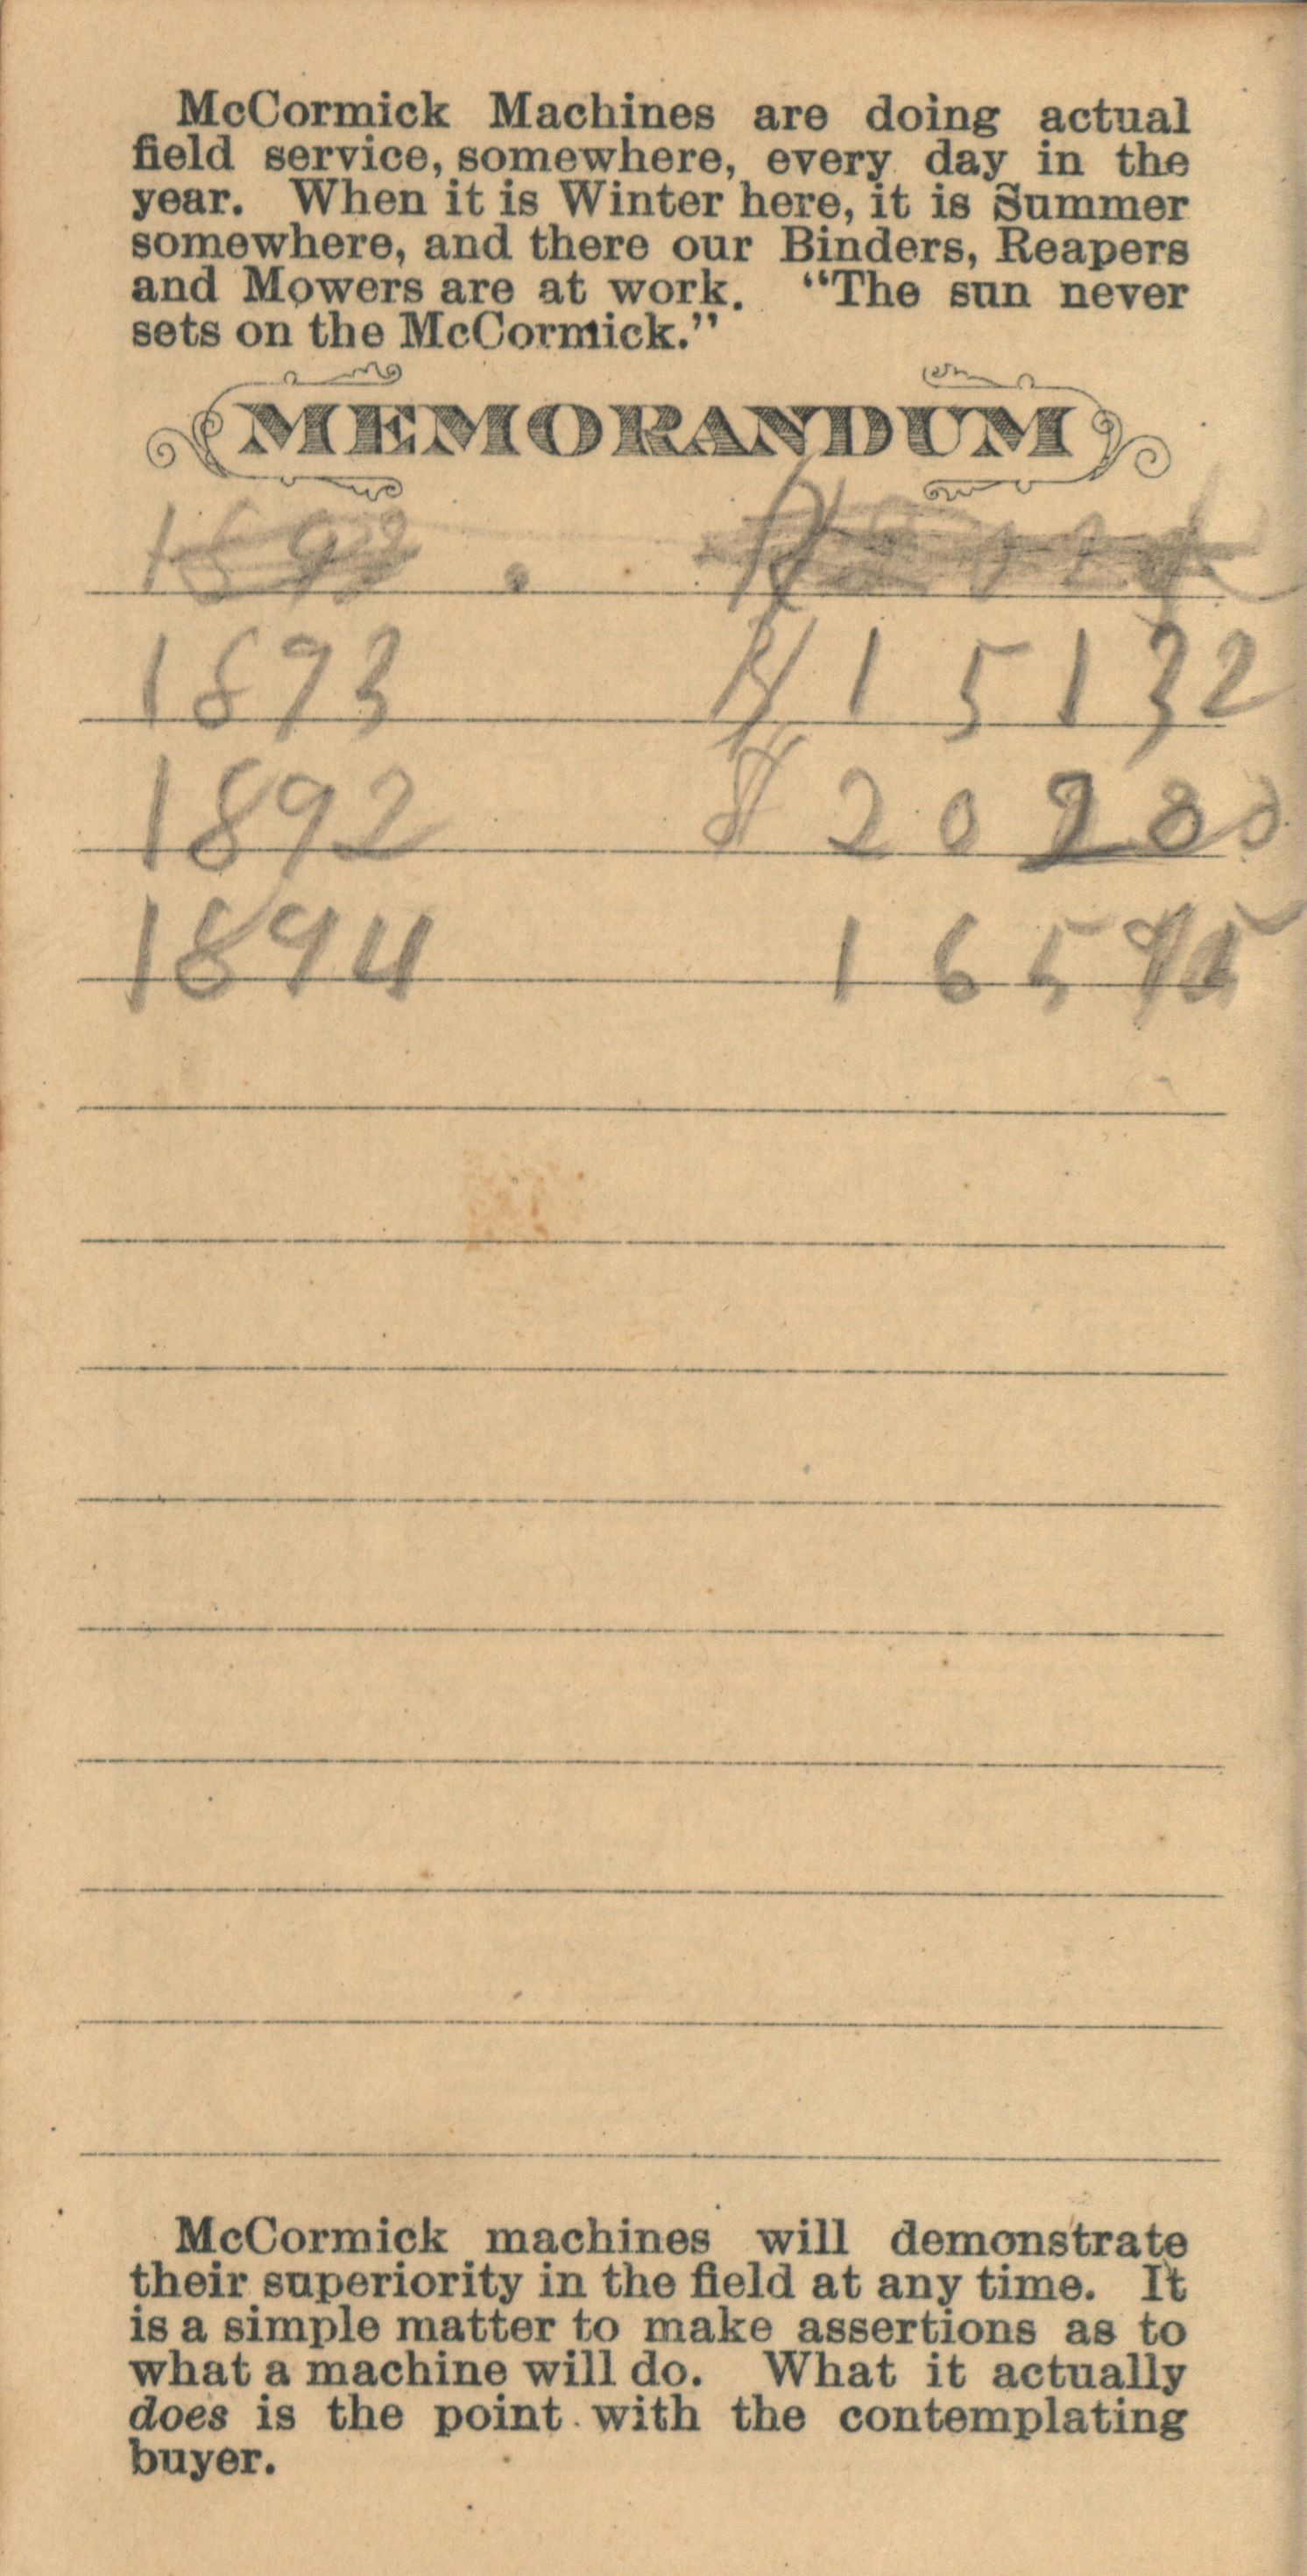 McCormick Machines are doing actual
field service, somewhere, every day in the
year. When it is Winter here, it is Summer
somewhere, and there our Binders, Reapers
and Mowers are at work. “The sun never
sets on the McCormick.”
MEMORANDUM
1893 $ 15132
1892 $ 20200
1894 165
McCormick machines will demonstrate
their superiority in the field at any time. It
is a simple matter to make assertions as to
what a machine will do. What it actually
does is the point with the contemplating
buyer.